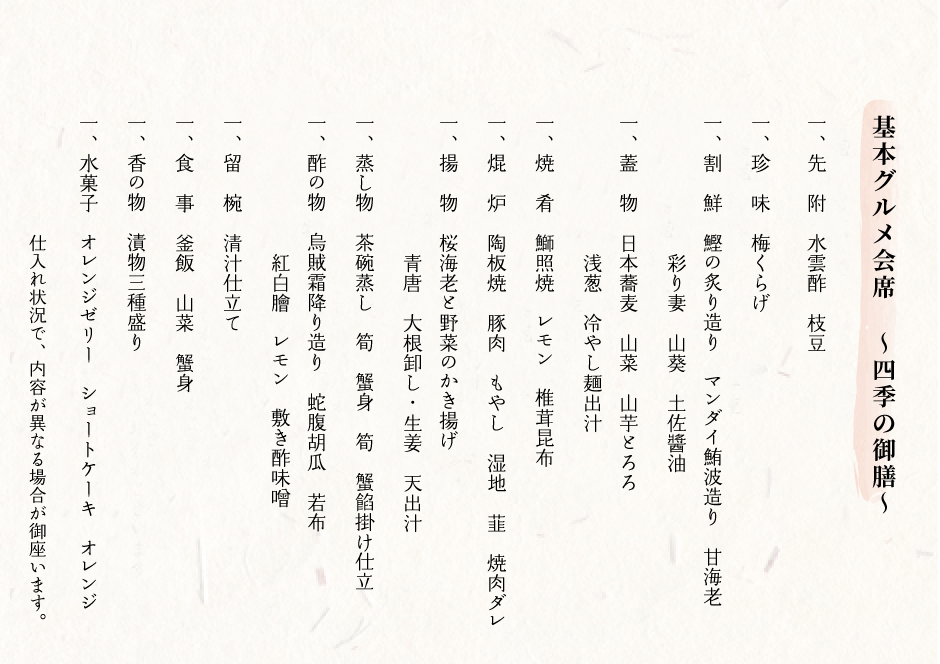 基本グルメ会席　～四季の御膳～
一、先　附　水雲酢　枝豆
一、珍　味　梅くらげ
一、割　鮮　鰹の炙り造り　マンダイ鮪波造り　甘海老
彩り妻　山葵　土佐醬油
一、蓋　物　日本蕎麦　山菜　山芋とろろ
浅葱　冷やし麺出汁
一、焼　肴　鰤照焼　レモン　椎茸昆布
一、焜　炉　陶板焼　豚肉　もやし　湿地　韮　焼肉ダレ
一、揚　物　桜海老と野菜のかき揚げ
青唐　大根卸し・生姜　天出汁
一、蒸し物　茶碗蒸し　筍　蟹身　筍　蟹餡掛け仕立
一、酢の物　烏賊霜降り造り　蛇腹胡瓜　若布
紅白膾　レモン　敷き酢味噌
一、留　椀　清汁仕立て
一、食　事　釜飯　山菜　蟹身
一、香の物　漬物三種盛り
一、水菓子　オレンジゼリー　ショートケーキ　オレンジ
仕入れ状況で、内容が異なる場合が御座います。